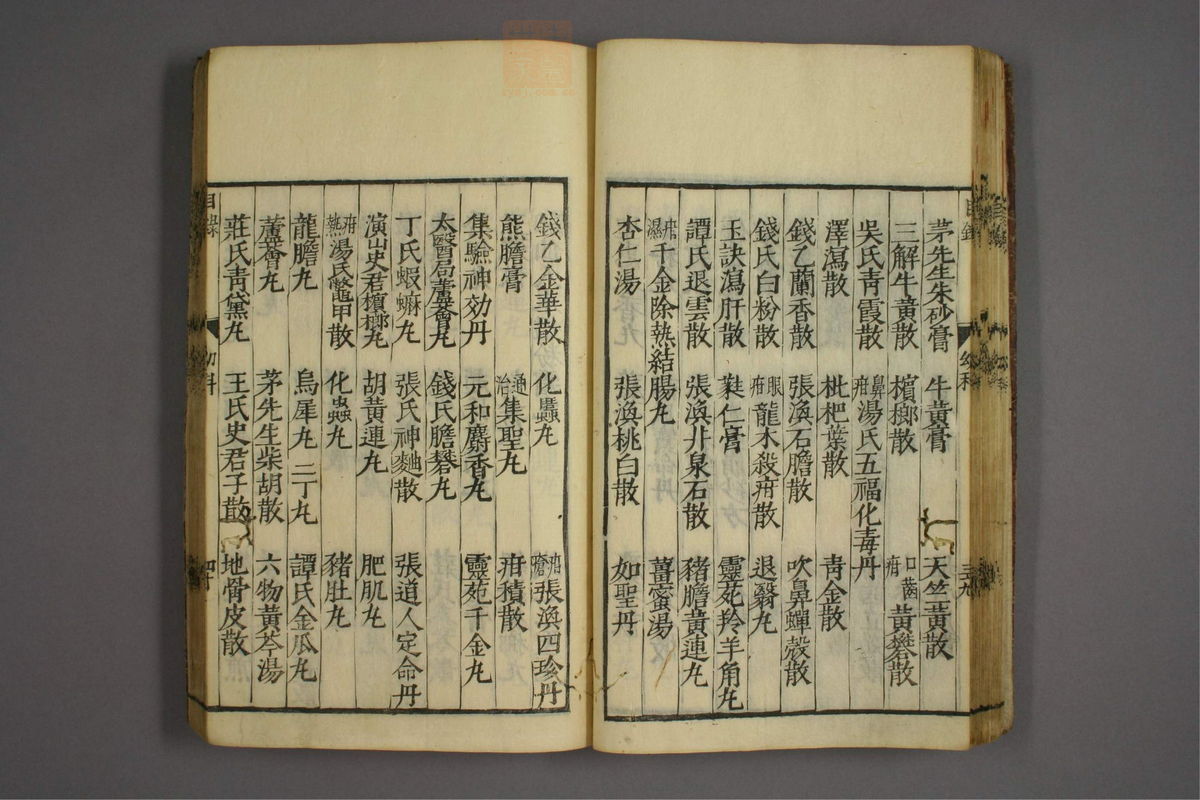 茅先生朱砂膏 牛黃膏 天竺黃散
三解牛黃散 檳榔散 口齒疳黃礬散
吳氏青霞散 鼻疳湯氏五福化毒丹
澤瀉散 枇杷葉散 青金散
錢乙蘭香散 張渙石膽散 吹鼻蟬殼散
錢氏白粉散 眼疳龍木殺疳散 退翳丸
玉訣瀉肝散 蕤仁膏 靈苑羚羊角丸
譚氏退雲散 張渙井泉石散 豬膽黃連丸
疳濕千金除熱結腸丸 薑蜜湯
杏仁湯 張渙桃白散 如聖丹
錢乙金華散 化䘌丸 疳瘡張渙四珍丹
熊膽膏 通治集聖丸 疳積散
集驗神効丹 元和麝香丸 靈苑千金丸
太醫局蘆薈丸 錢氏膽礬丸
丁氏蝦蟆丸 張氏神麯散 張道人定命丹
演山史君檳榔丸 胡黃連丸 肥肌丸
疳熱湯氏鼈甲散 化蟲丸 豬肚丸
龍膽丸 烏犀丸 二丁丸 譚氏金瓜丸
蘆薈丸 茅先生柴胡散 六物黃芩湯
莊氏青黛丸 王氏史君子散 地骨皮散
目錄 幼科